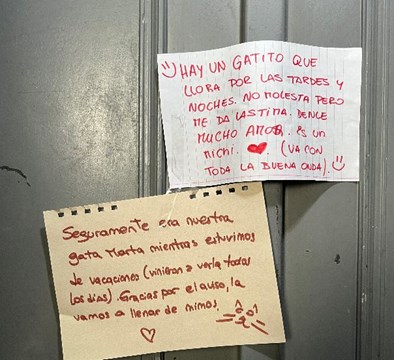 HAY UN GATITO QUE
LLORA POR LAS TARDES Y
NOCHES. NO MOLESTA PERO
ME DA LASTIMA. DENLE
MUCHO AMOR. ES UN
MICHI. (VA CON
TODA LA BUENA ONDA).
Seguramente era nuestra
gata Marta mientras estuvimos
de vacaciones (vinieron a verla todos
los días). Gracias por el aviso, la
vamos a llenar de mimos.